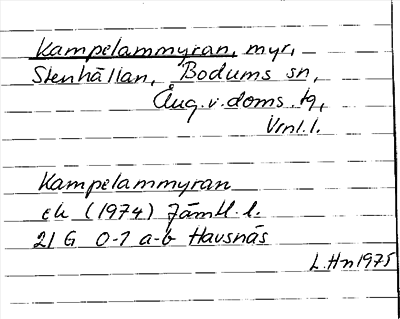 Kampelammyran, myr,
Stenhällan, Bodums sn,
Ång.v.doms. tg,
Vrnl.l.
Kampelammyran
ek (1974) Jämtl.l.
21 G 0-1 a-b Havsnäs
L.Hn 1975